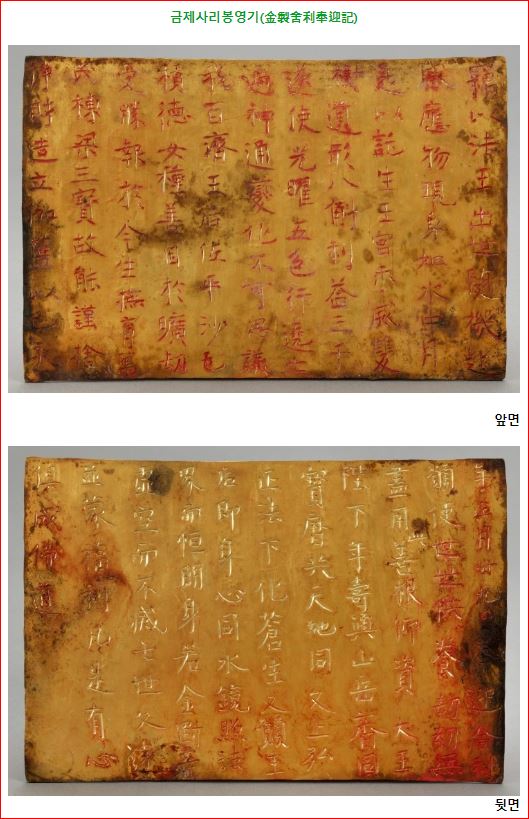 금제사리봉영기(金製舍利奉迎記)
竊以法王出世隨機赴
感應物現身如水中月
是以託生王宮示滅雙
樹遺形八斛利益三千
遂使光曜五色行遶七
遍神通變化不可思議
我百濟王后佐平沙乇
積德女種善因於曠劫
受勝報於今生撫育萬
民棟梁三寶故能謹捨
淨財造立伽藍以己亥
앞면
年正月卄九日奉迎舍利
願使世世供養劫劫無
盡用善根仰資 大王
陛下年壽與山岳齊固
寶曆共天地同久上弘
正法下化蒼生又願王
后即身心同水鏡照法
界而恒明身若金剛等
虛空而不滅七世久遠
並蒙福利凡是有心
俱成佛道
뒷면